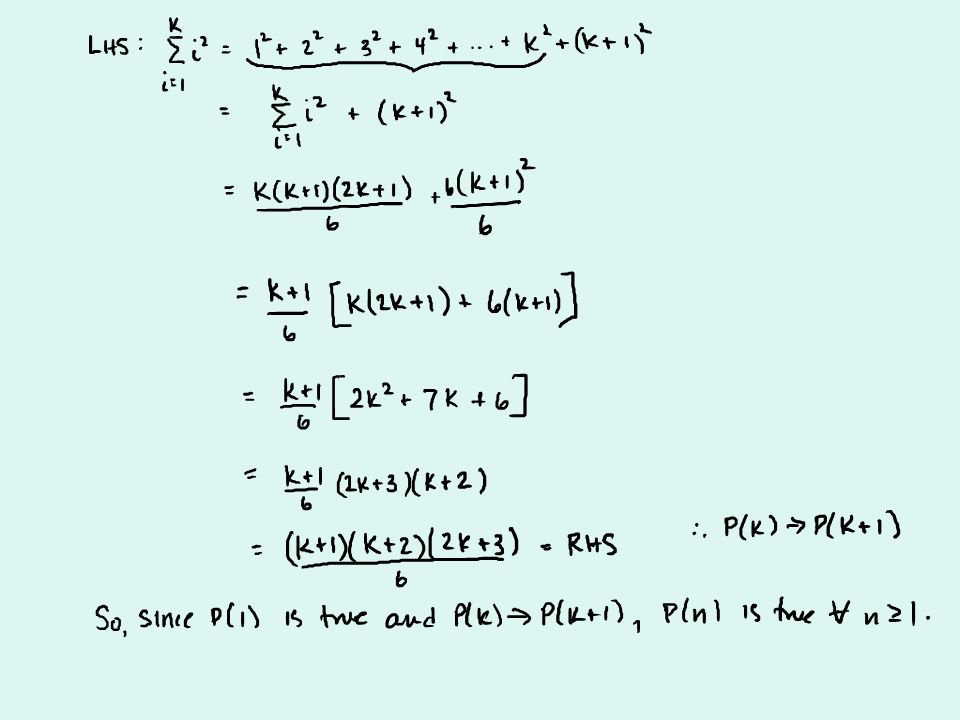 LHS: \sum_{i=1}^{K} i^2 = 1^2 + 2^2 + 3^2 + 4^2 + ... + K^2 + (K+1)^2
= \sum_{i=1}^{K} i^2 + (K+1)^2
= \frac{K(K+1)(2K+1)}{6} + \frac{6(K+1)^2}{6}
= \frac{K+1}{6} [K(2K+1) + 6(K+1)]
= \frac{K+1}{6} [2K^2 + 7K + 6]
= \frac{K+1}{6} (2K+3)(K+2)
= \frac{(K+1)(K+2)(2K+3)}{6} = RHS ∴ P(K) → P(K+1)
So, since P(1) is true and P(K) → P(K+1), P(n) is true ∀ n ≥ 1.